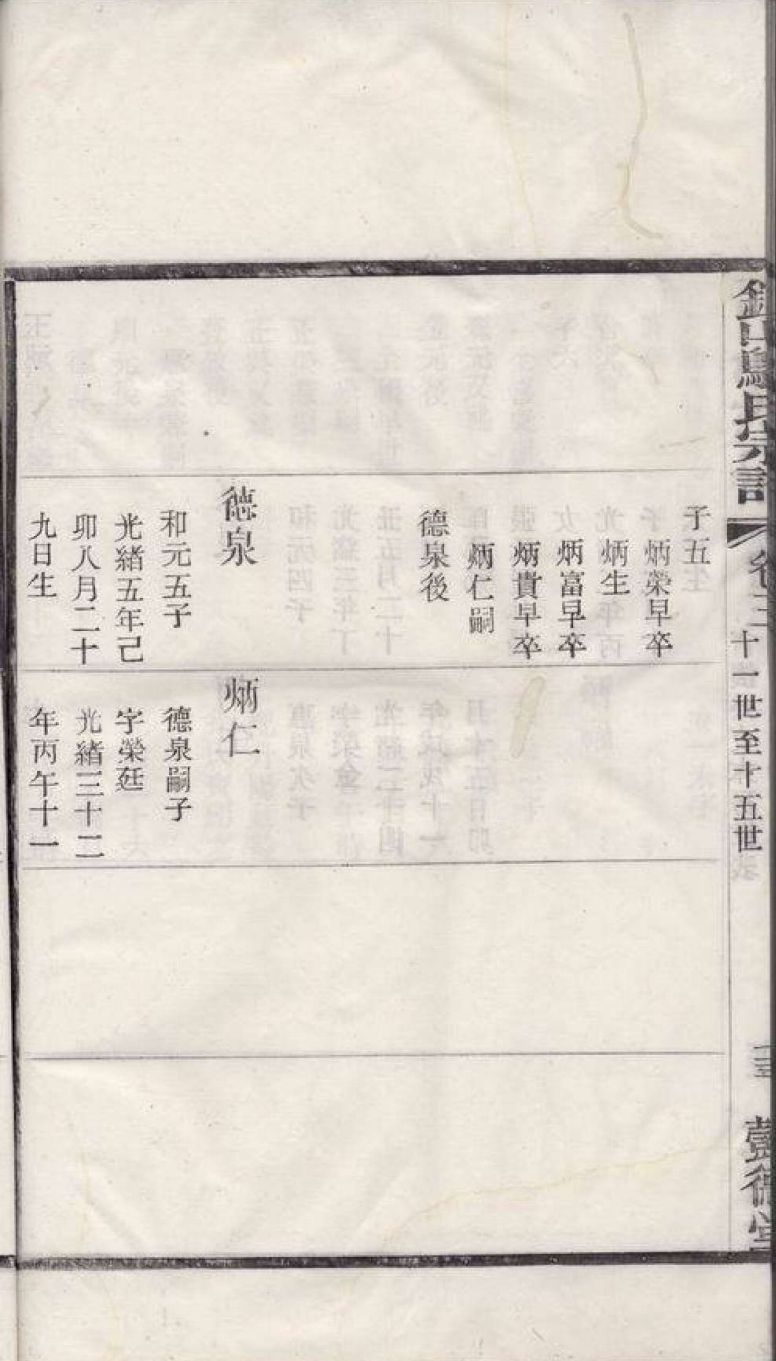 氏宗譜
卷三
十一世至十五世
懿德堂
子五
炳榮早卒
炳生
炳富早卒
炳貴早卒
炳仁嗣
德泉後
德泉
和元五子
光緒五年己
卯八月二十
九日生
炳仁
德泉嗣子
字榮廷
光緒三十二
年丙午十一